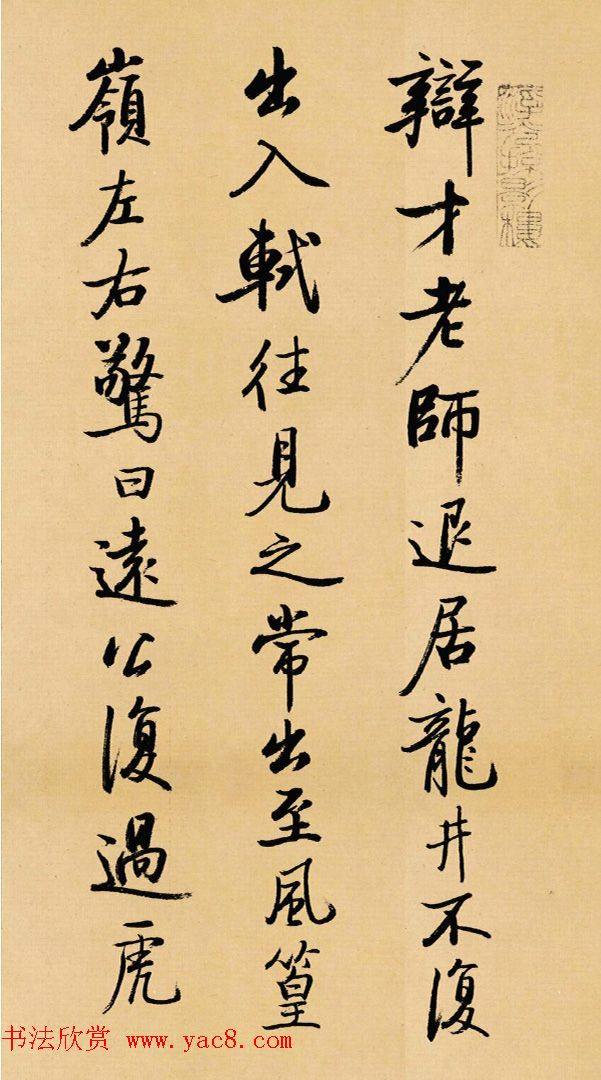 辯才老師退居龍井不復
出入軾往見之常出至風篁
嶺左右驚曰遠公復過虎
书法欣赏 www.yac8.com